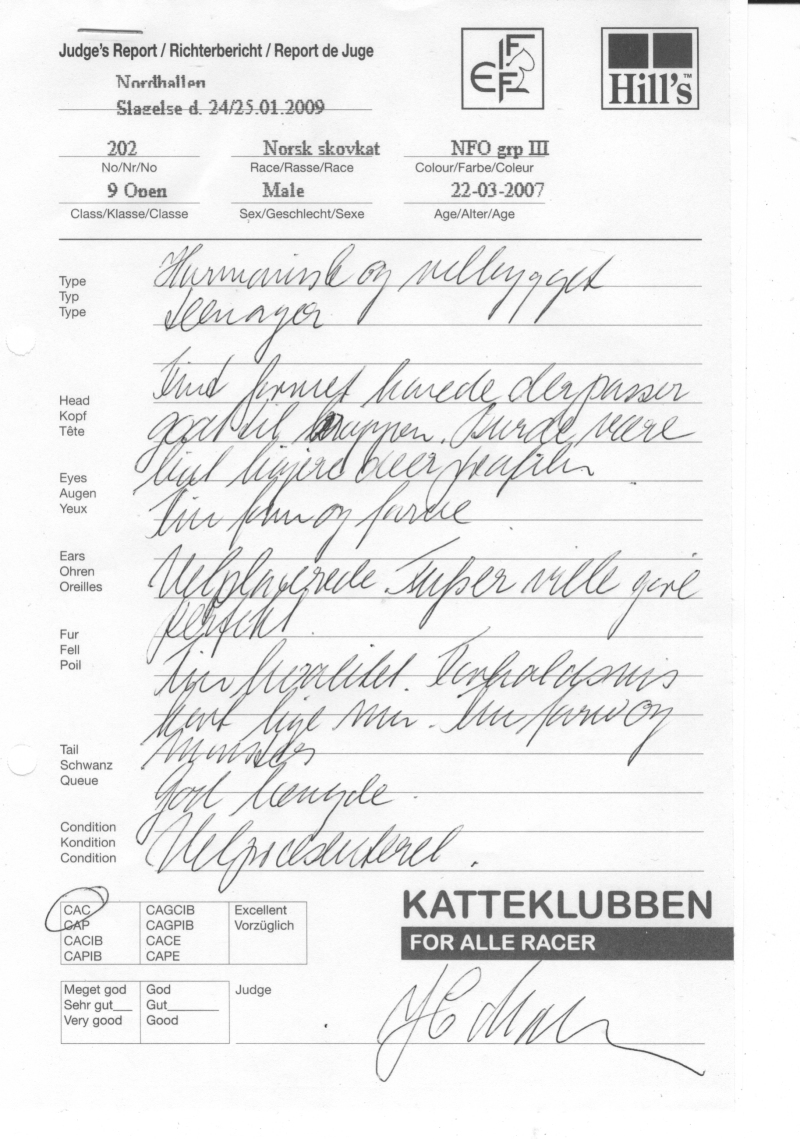 Judge's Report / Richterbericht / Report de Juge
FIFE
Hill's™
Nordhallen
Slagelse d. 24/25.01.2009
202 Norsk skovkat NFO grp III
No/Nr/No Race/Rasse/Race Colour/Farbe/Coleur
9 Open Male 22-03-2007
Class/Klasse/Classe Sex/Geschlecht/Sexe Age/Alter/Age
Type
Typ
Type
Harmonisk og velbygget
teenager
Head
Kopf
Tête
Fint formet hovede der passer
godt til kroppen. Burde være
lidt højere over profilen
Eyes
Augen
Yeux
Fin form og farve
Ears
Ohren
Oreilles
Velplacerede. Tufser ville gøre
perfekt
Fur
Fell
Poil
Fin kvalitet. Forholdsvis
kort lige nu. Fin farve og
mønster
Tail
Schwanz
Queue
God længde.
Condition
Kondition
Condition
Velpræsenteret.
CAC CAGCIB Excellent
CAP CAGPIB Vorzüglich
CACIB CACE
CAPIB CAPE
KATTEKLUBBEN
FOR ALLE RACER
Meget god God Judge
Sehr gut Gut
Very good Good